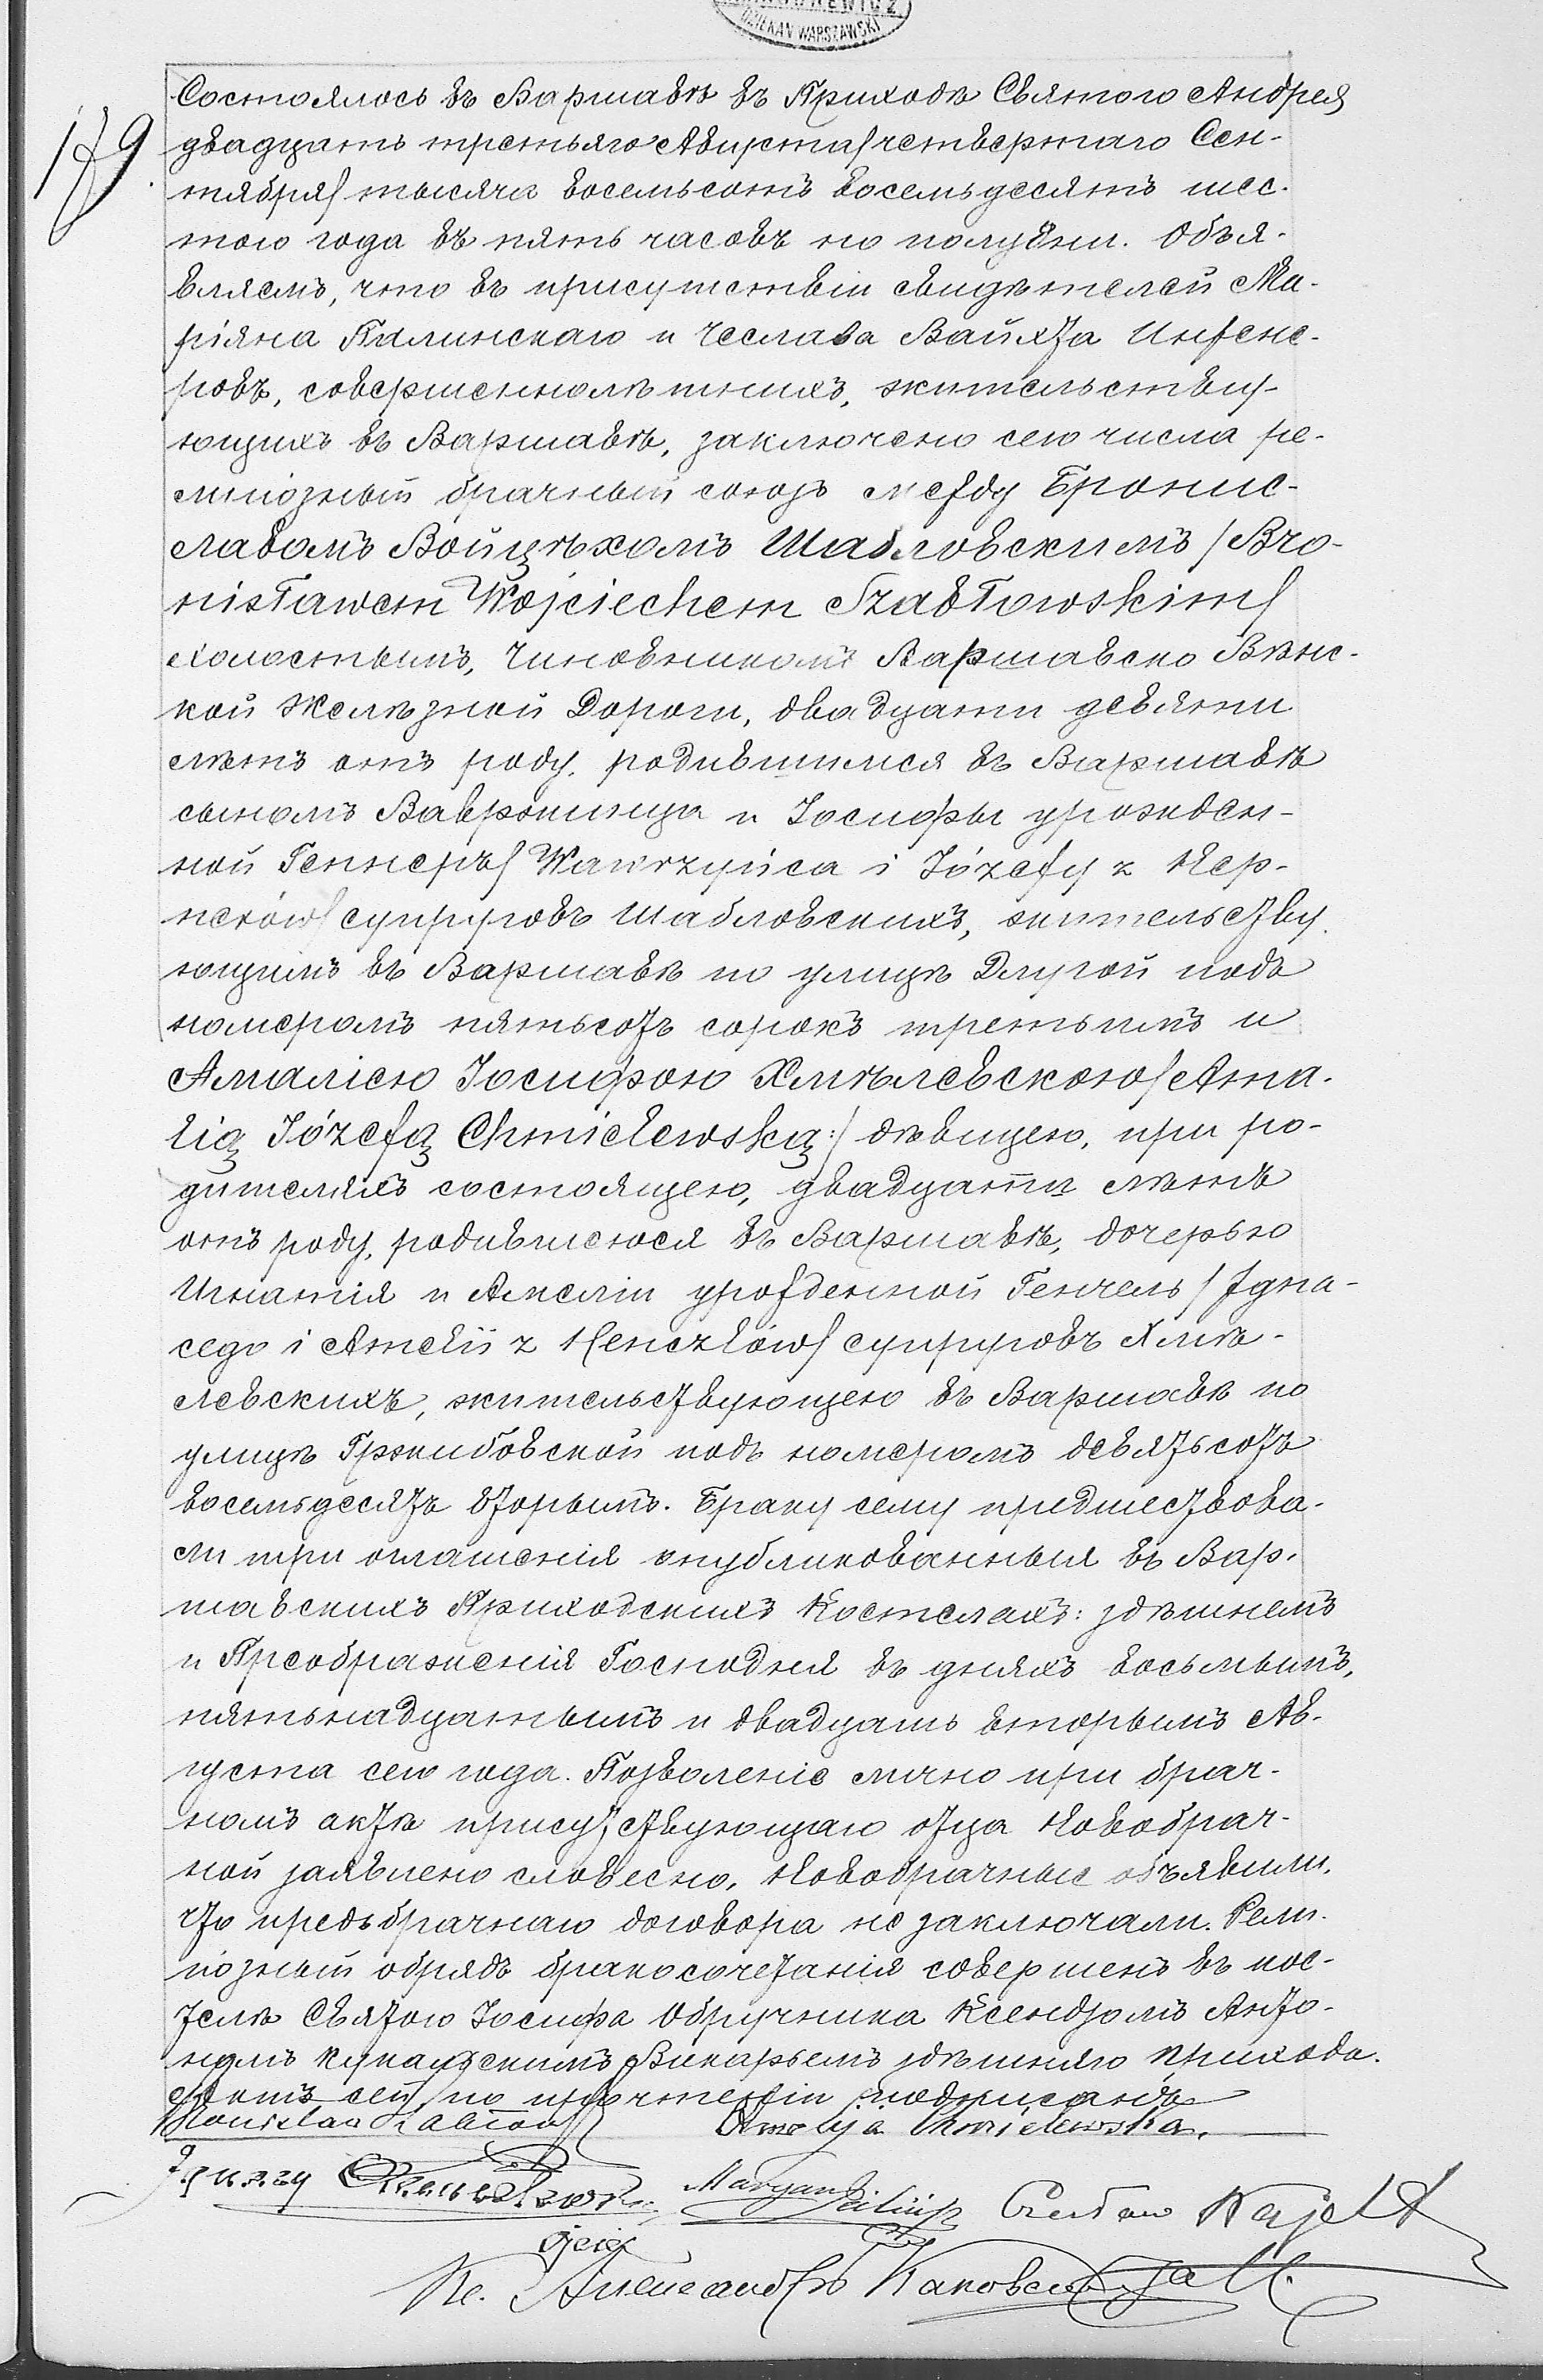 DZIEKAN WARSZAWSKI
179.
Состоялось въ Варшавѣ въ Приходѣ Святого Андрея
двадцать третьяго Августа/четвертаго Сен-
тября/ тысяча восемьсотъ восемьдесятъ шес-
того года въ пять часовъ по полудни. Объя-
вляемъ, что въ присутствіи свидѣтелей Ма-
ріяна Пилинскаго и Чеслава Вайхта Инжене-
ровъ, совершеннолѣтнихъ, жительству-
ющихъ въ Варшавѣ, заключено сего числа ре-
лигіозный брачный союзъ между Бронис-
лавомъ Войцѣхомъ Шабловскимъ /Bro-
nisławem Wojciechem Szabłowskim/
холостымъ, Чиновникомъ Варшавско Вѣнс-
кой Желѣзной Дороги, двадцати девяти
лѣтъ отъ роду, родившимся въ Варшавѣ
сыномъ Вавржинца и Іосифы урожден-
ной Гепперъ/ Wawrzyńca i Józefy z Hep-
nerów/ супруговъ Шабловскихъ, жительству-
ющимъ въ Варшавѣ по улицѣ Длугой подъ
номеромъ пятьсотъ сорокъ третьимъ и
Амаліею Іосифою Хмѣлевскою/Ama-
lią Józefą Chmielewską:/ дѣвицею, при ро-
дителяхъ состоящею, двадцати лѣтъ
отъ роду, родившеюся въ Варшавѣ, дочерью
Игнатія и Амеліи урожденной Генчель /Igna-
cego i Amelii z Henczlów/ супруговъ Хмѣ-
левскихъ, жительствующею въ Варшавѣ по
улицѣ Гржибовской подъ номеромъ девятьсотъ
восемьдесятъ вторымъ. Браку сему предшествова-
ли три оглашенія опубликованныя въ Вар-
шавскихъ Приходскихъ Костелахъ: здѣшнемъ
и Преображенія Господня въ дняхъ восьмымъ,
пятьнадцатымъ и двадцать вторымъ Ав-
густа сего года. Позволеніе лично при брач-
номъ актѣ присутствующаго отца Новобрач-
ной заявлено словесно. Новобрачные объявили,
что предъбрачнаго договора не заключали. Рели-
гіозный обрядъ бракосочетанія совершенъ въ кос-
телѣ Святого Іосифа Обручника Ксендзомъ Анто-
нимъ Викарьемъ здѣшняго Прихода.
Актъ сей по прочтеніи подписанъ
Bronisław Amelya Chmielewska.
Ignacy Chmielewski Maryan Czesław Wajcht
ojciec
Кс. Александръ Каковскій